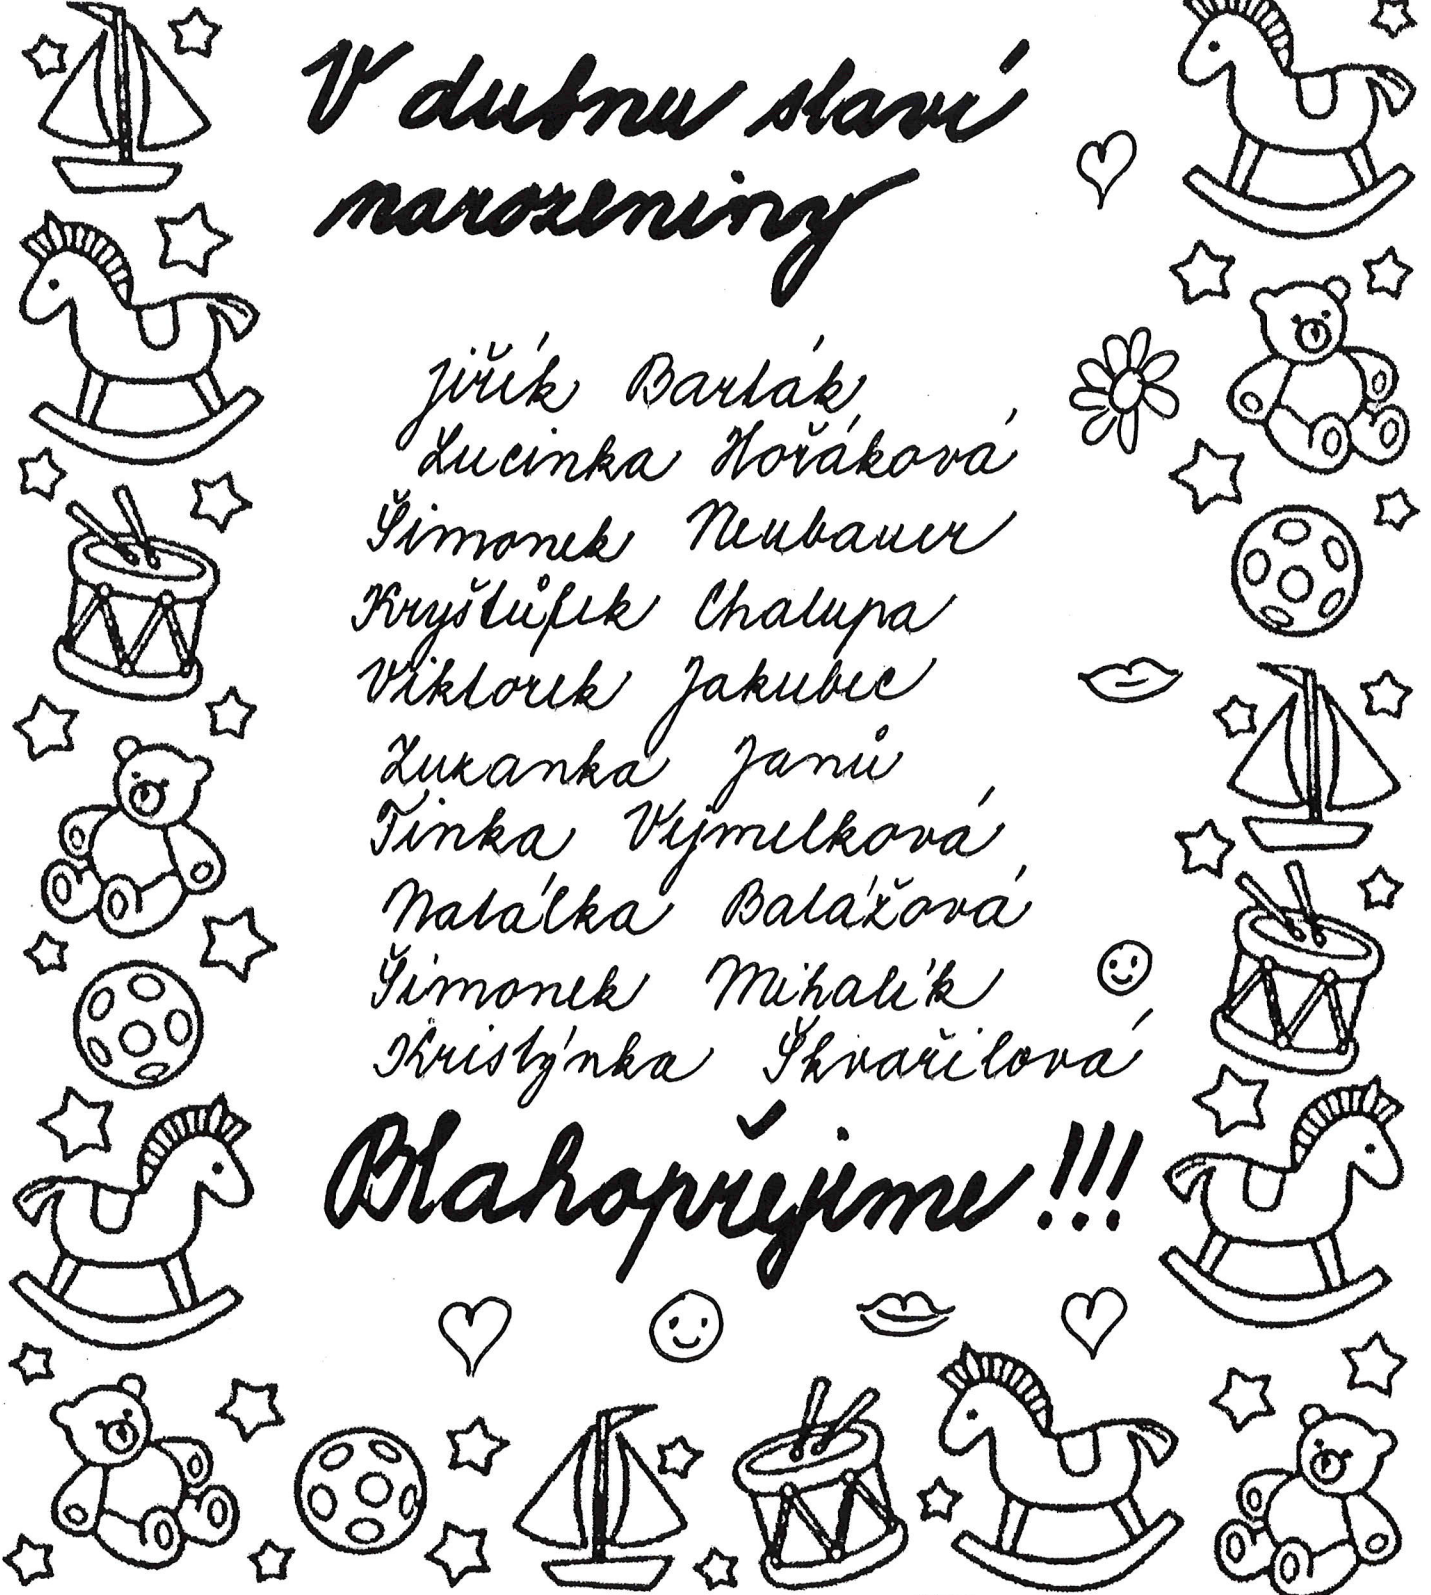 V dubnu slaví
narozeniny
Jiřík Barták
Lucinka Hořáková
Šimonek Neubauer
Kryštůfek Chalupa
Viktorek Jakubec
Zuzanka Janů
Tinka Vejmelková
Natálka Balážová
Šimonek Mihalík
Kristýnka Škvařilová
Blahopřejeme!!!